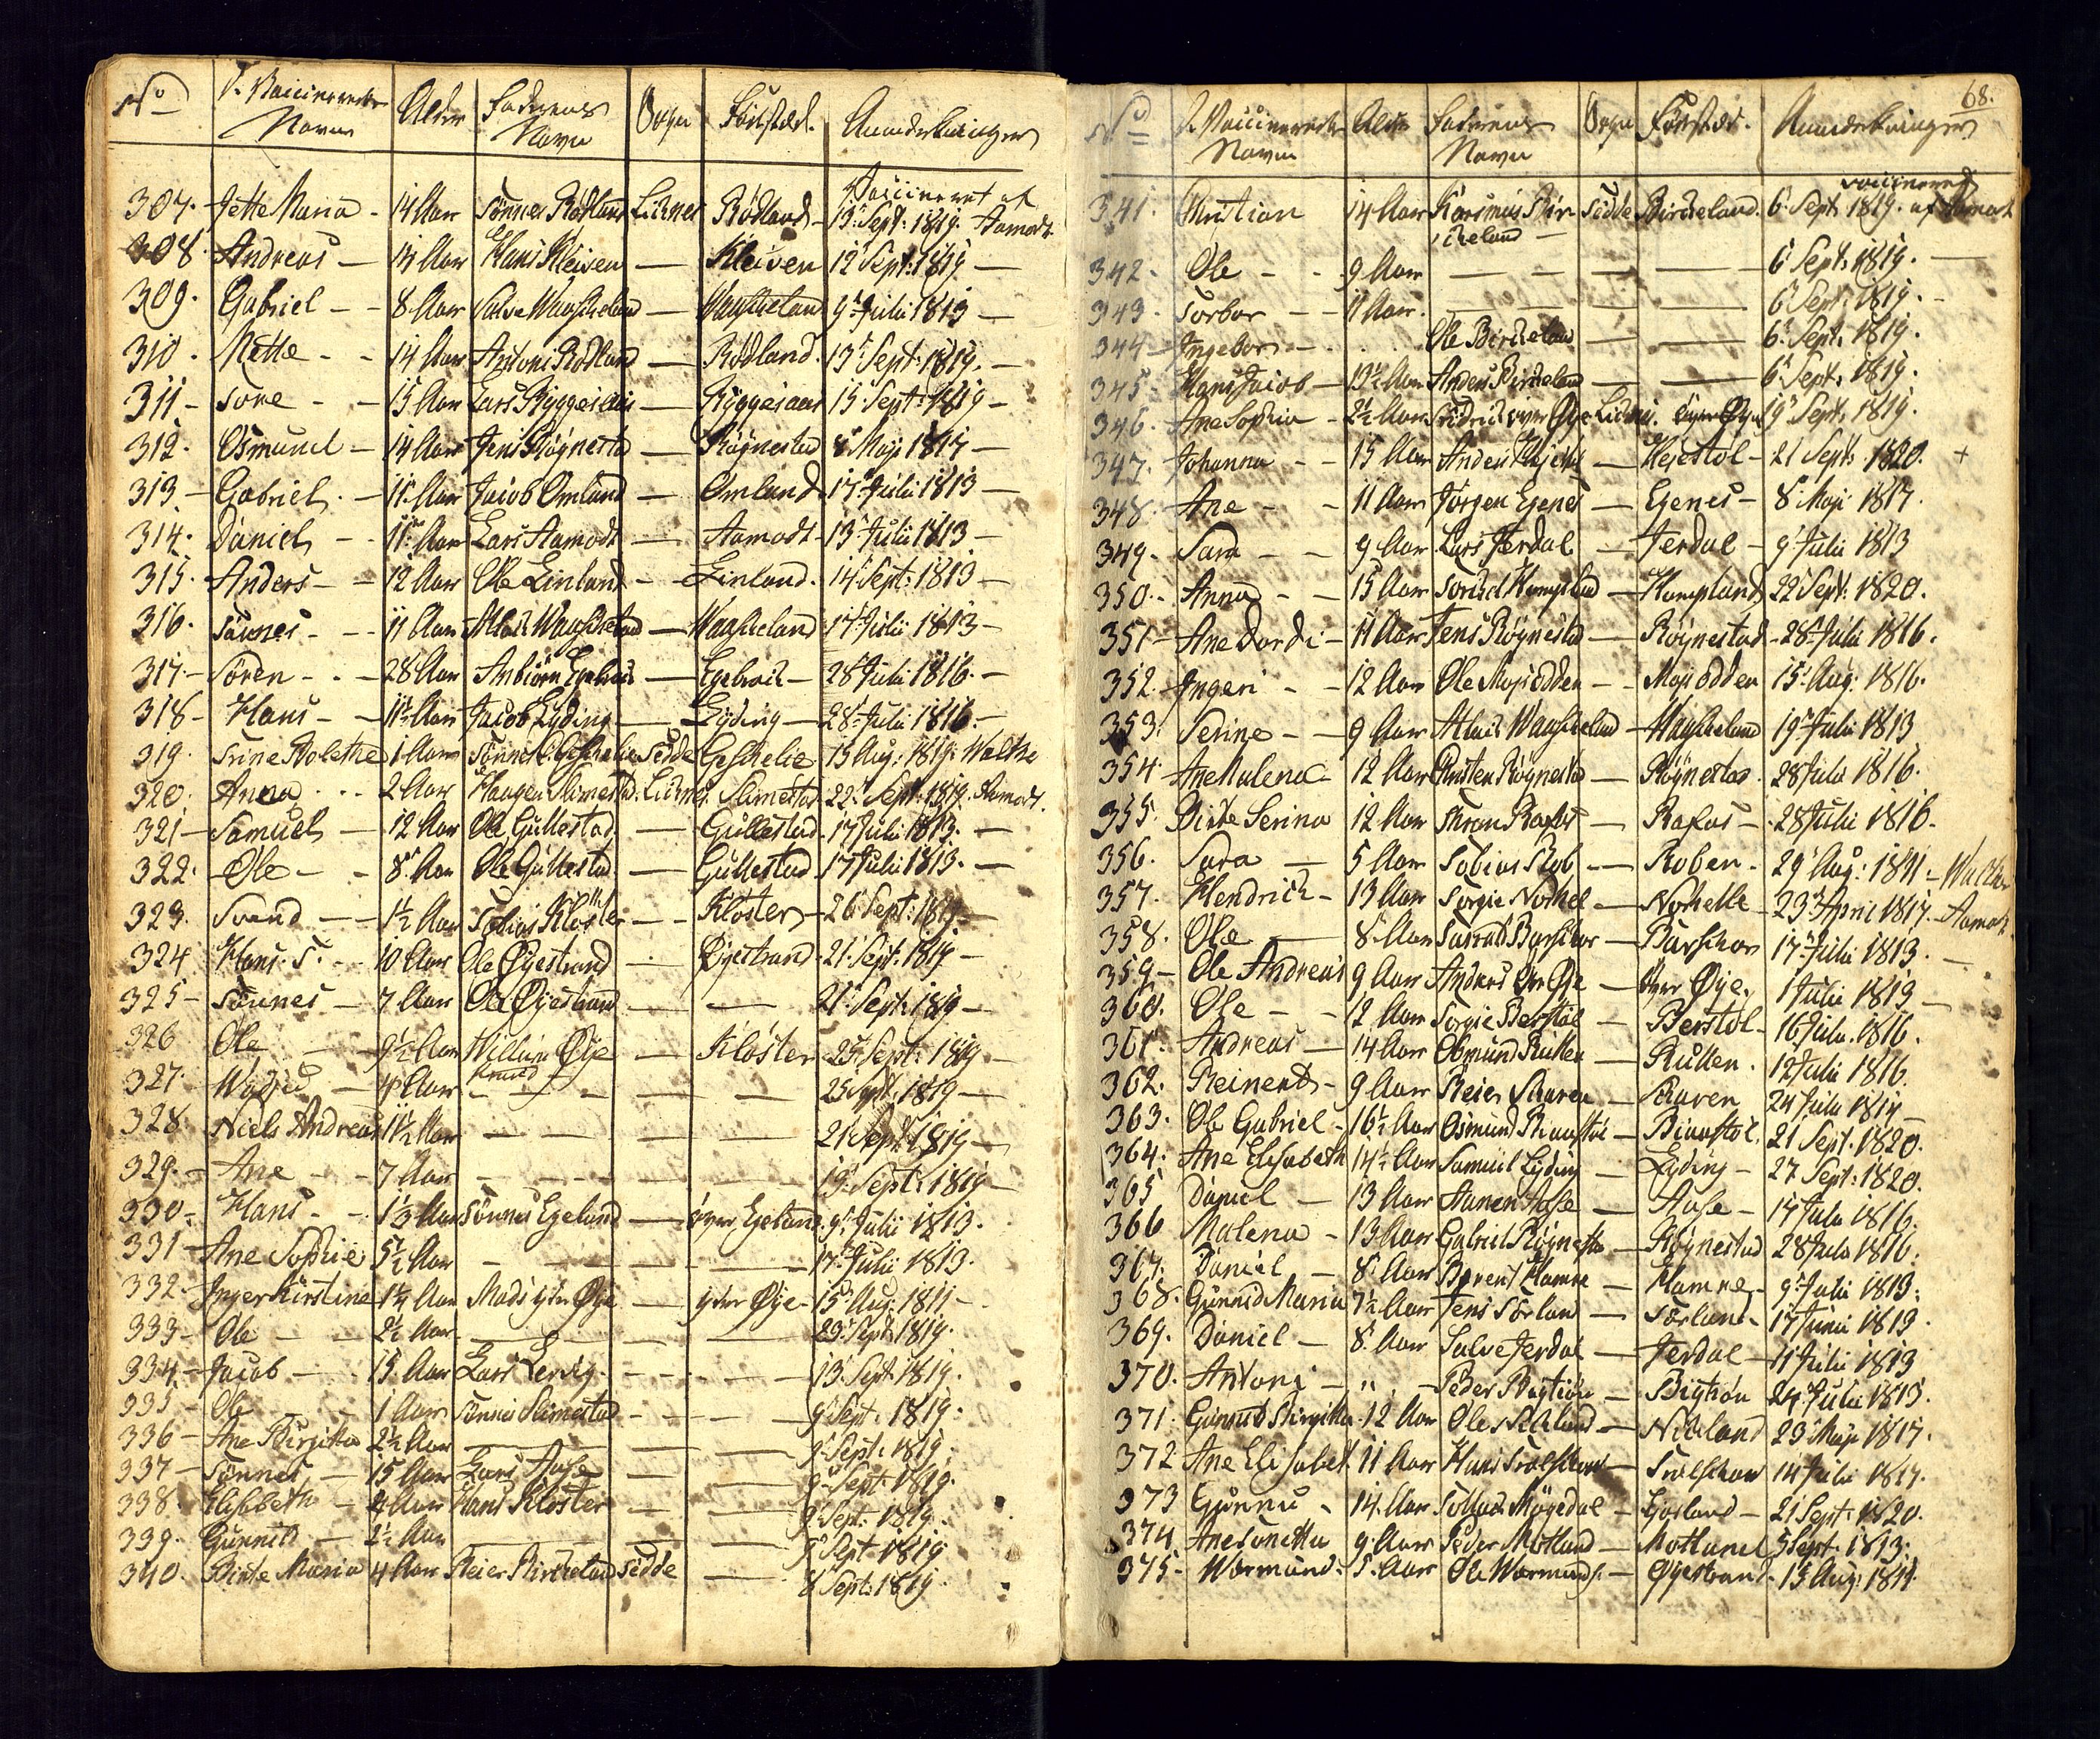 No D. Vaccineredes Navn Alder Faderens Navn Sogn Fødested. Anmærkninger
307. Jette Maria - 14 Aar Tønnes Rødland Liknes Rødland - Vaccineret af 13 Sept: 1819. Aamodt
308. Andreas - 14 Aar Hans Kleiven — Kleiven 12 Sept: 1819 —
309. Gabriel - - 8 Aar Salve Waasheland — Waasheland 9 Julii 1813 —
310. Mette - - 14 Aar Antoni Rødland — Rødland. 13 Sept: 1819. —
311 - Tore - - 15 Aar Lars Ryggesaas — Ryggesaas 15 Sept: 1819 —
312. Osmund - 14 Aar Jens Røgnestad — Røgnestad 8 Maji 1817 —
313. - Gabriel. - 11 Aar Jacob Omland — Omland 17 Julii 1813 —
314. Daniel - - 11 Aar Lars Aamodt — Aamodt - 13 Julii 1813 —
315. Anders - - 12 Aar Ole Linland - - Linland. 14 Sept: 1813 —
316. Tønnes - - - 11 Aar Atlak Waasheland — Waasheland 17 Julii 1813 —
317 - Søren - - - 28 Aar Anbiørn Egebak — Egebak - 28 Julii 1816. —
318 - Hans - - 11½ Aar Jacob Lyding — Lyding — 28 Julii 1816. —
319. Trine Bolethe 1 Aar Tønnes Geshelie Fedde Geshelie 13 Aug: 1819. Walthe
320. Anna - - - 2 Aar Haagen Slimestad. Liknes. Slimestad 22 Sept. 1819. Aamodt.
321 - Samuel — 12 Aar Ole Gullestad. — Gullestad - 17 Julii 1813. —
322. Ole - - 8 Aar Ole Gullestad — Gullestad 17 Julii 1813. —
323. Svend - - 1½ Aar Tobias Kloster - - Kloster - 26 Sept: 1819 —
324 Hans. T. - - 10 Aar Ole Øyestrand — Øyestrand - 21 Sept. 1819 —
325 - Tønnes — 7 Aar Ole Øyestrand — — 21 Sept: 1819 —
326 Ole — 9½ Aar Willum Øye — Kloster 25 Sept: 1819 —
327. — 4 Aar - - - — 25 Sept. 1819 —
328. Niels Andreas 11½ Aar — — — — 21 Sept: 1819 —
329. - Ane - - 7 Aar - - — — 19 Sept: 1819 —
330. - Hans - - 1½ Aar Tønnes Egeland — øvre Egeland. 9 Julii 1813.
331 - Ane Sophie 5½ Aar — — — 17 Julii 1813.
332. - Inger Kirstine 1¼ Aar Mads ytre Øye — ytre Øye - 15 Aug. 1811 -
333 - Ole - - 2½ Aar — — 23 Sept. 1819.
334. - Jacob - - 15 Aar Lars Lervig. — — 13 Sept. 1819.
335 - Ole - - 1 Aar Tønnes Slimestad - - - 9 Sept. 1819.
336 - Ane Birgitta 2½ Aar — — 9 Sept. 1819.
337 - Tønnes — 15 Aar Lars Aase — — 9 Sept. 1819.
338. Elisabeth - 4 Aar Hans Kloster — — 9 Sept: 1819.
339. - Gunnild — 2½ Aar — — 9 Sept 1819
340. Birte Maria 4 Aar Reier Birkeland Fedde — 8 Sept: 1819.
68.
No D. Vaccineredes Navn Alder Faderens Navn Sogn Fødested. Anmærkninger
341. Christian 14 Aar Rasmus Birkeland — Fedde Birkeland. 6 Sept. 1819. vaccineret af Aamodt
342. Ole - - 9 Aar — — — 6 Sept. 1819. —
343. Torbor - - 11 Aar. — — — 6 Sept: 1819. -
344 - Ingebor - - . . . Ole Birkeland — — 6 Sept. 1819.
345. Hans Jacob - 13½ Aar Anders Birkeland — — 6 Sept. 1819.
346. Ane Sophia - 2½ Aar Fridrich øvre Øye Liknes. øvre Øye 19 Sept. 1819.
347. Johanna - - 15 Aar Anders Hejestøl — Hejestøl - 21 Sept. 1820. +
348. Ane - - 11 Aar Jørgen Egenes — Egenes - 8 Maji 1817.
349. Sara - - 9 Aar Lars Jerdal — Jerdal - 9 Julii 1813
350. - Anna - - 15 Aar Torkel Kampland — Kampland 22 Sept: 1820.
351 - Ane Dordi - 11 Aar Jens Røgnestad — Røgnestad - 28 Julii 1816.
352. Ingeri - - 12 Aar Ole Mosodden - - Mosodden 15 Aug: 1816.
353. Serine - - 9 Aar Atlak Waasheland - Waasheland 19 Julii 1813
354. Ane Malena 12 Aar Christen Røgnestad — Røgnestad. 28 Julii 1816.
355. Birte Serina 12 Aar Thron Rafos — Rafos - 28 Julii 1816.
356. Sara — 5 Aar Tobias Rob — Roben - 29 Aug: 1811 - Walthe
357. Hendrich - 13 Aar Torgie Nothel — Nothelle 23 April 1817 - Aamodt.
358. Ole — 8 Aar Barshou — Barshou 17 Julii 1813. —
359 - Ole Andreas 9 Aar Anders øvre Øye — øvre Øye. 1 Julii 1813 —
360. Ole - - 12 Aar Torgie Berstøl — Berstøl - 16 Julii. 1816.
361. Andreas — 14 Aar Osmund Rullen — Rullen. 12 Julii 1816.
362. Reinert - 9 Aar Reier Skaven — Skaven 24 Julii 1814
363. Ole Gabriel - 16½ Aar Osmund Biaastøl — Biaastøl. 21 Sept. 1820.
364. Ane Elisabeth 14½ Aar Samuel Lyding — Lyding - 27 Sept: 1820.
365 Daniel — 13 Aar Hanen Aase — Aase - 17 Julii 1816.
366 Malena - 13 Aar Gabriel Røgnestad — Røgnestad 28 Julii 1816.
367. Daniel — 8 Aar Berent Hamre — Hamre - 9 Julii 1813.
368. Gunnild Maria 7½ Aar Jens Sørland — Sørland. 17 Junii 1813.
369. Daniel — 8 Aar Salve Jerdal — Jerdal - 11 Julii 1813
370. Antoni — " - Peder Bigtiøn — Bigtiøn 24 Julii 1813.
371. Gunnild Birgitta 12 Aar Ole Nikland — Nikland 23 Maji 1817.
372 Ane Elisabet. 11 Aar Hans Trælshoue — Trælshoue 14 Julii 1817.
373 Gunnu - 14. Aar Tollak Møgedal — Egeland — 21 Sept: 1820.
374 Ane Tonetta 9 Aar Peder Motland — Motland 5 Sept. 1813.
375. Wormund. 5 Aar Ole Wormunds. — Øyestrand. 15 Aug: 1811.